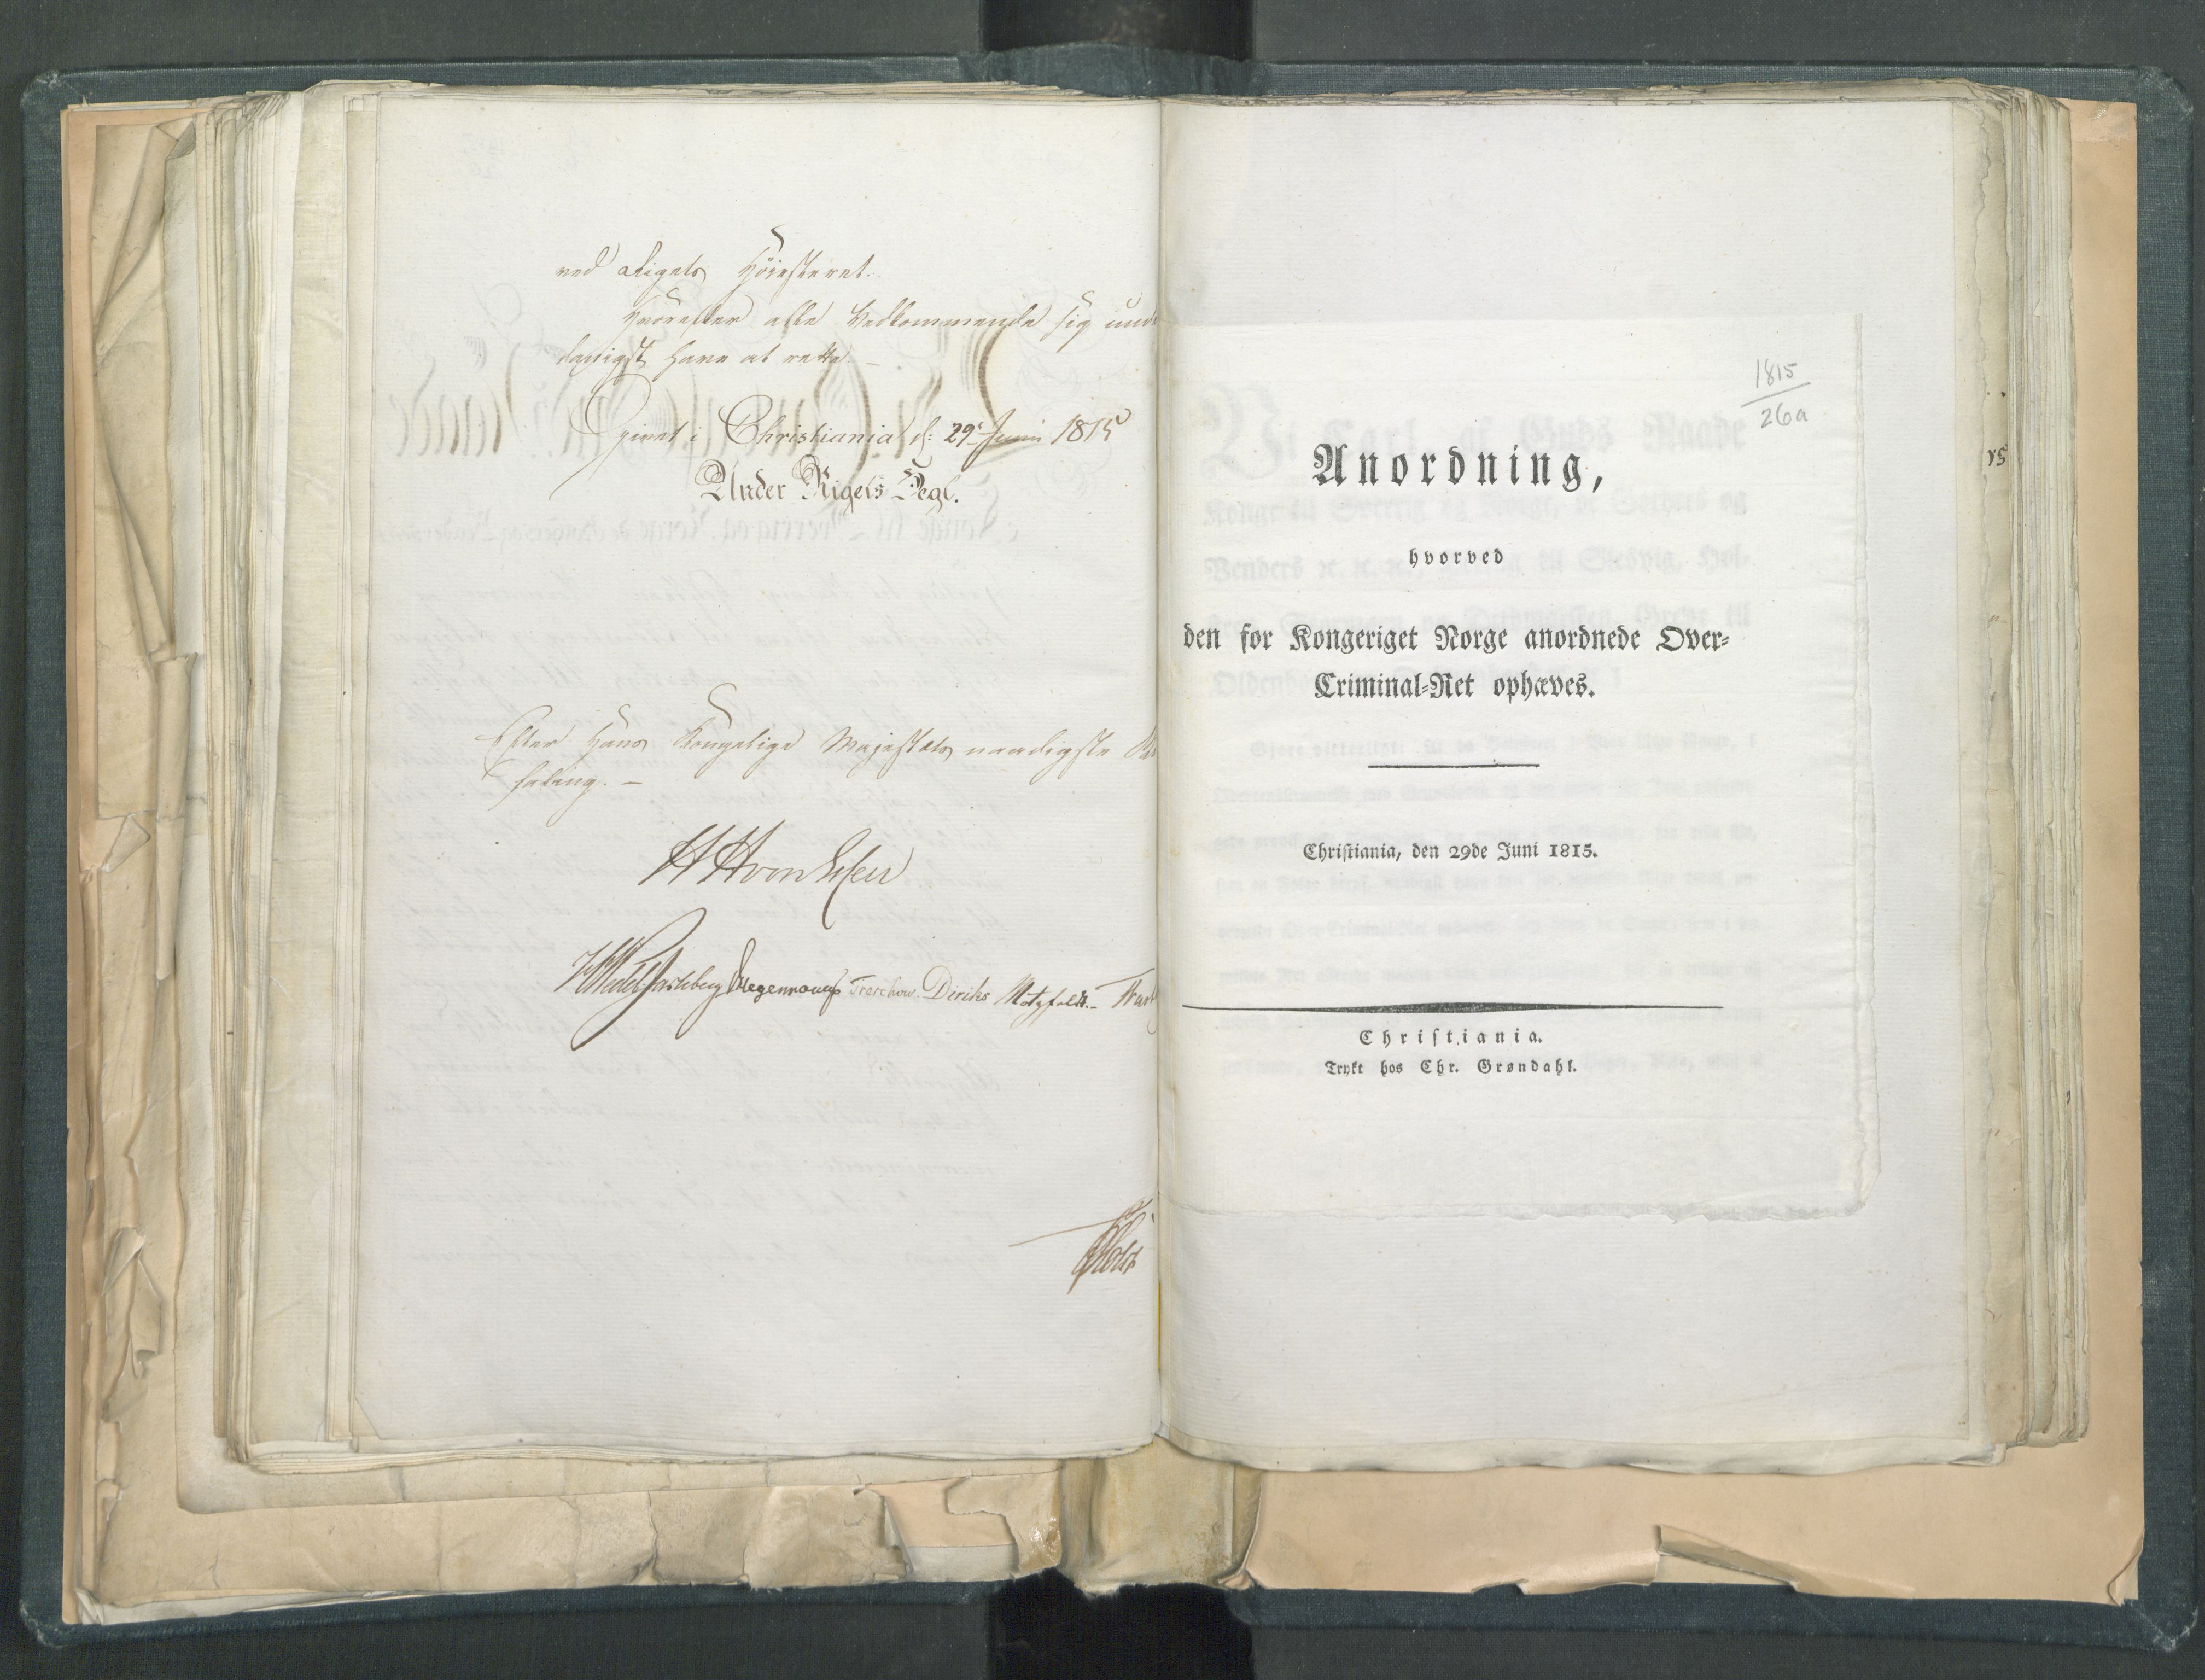 ved Rigets Höiesteret.
Hvorefter alle Vedkommende sig und
danigst have at rette. –
Givet i Christiania d: 29de Juni 1815
Under Rigets Segl.
Efter Hans Kongelige Majestæts naadigste Be
faling. –
HHvonEssen
HWedelJarlsberg Hegermann Treschow. Diriks Motzfeldt. –
Holst
1815
26a
Anordning,
hvorved
den for Kongeriget Norge anordnede Over-
Criminal-Ret ophæves.
Christiania, den 29de Juni 1815.
Christiania.
Trykt hos Chr. Grøndahl.
15